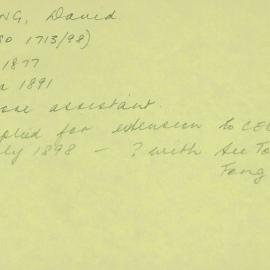 NG, David.
1713/98)
1877
1891
assistant.
plied for extension to CE
ly 1898 - ? with Au To
Fong